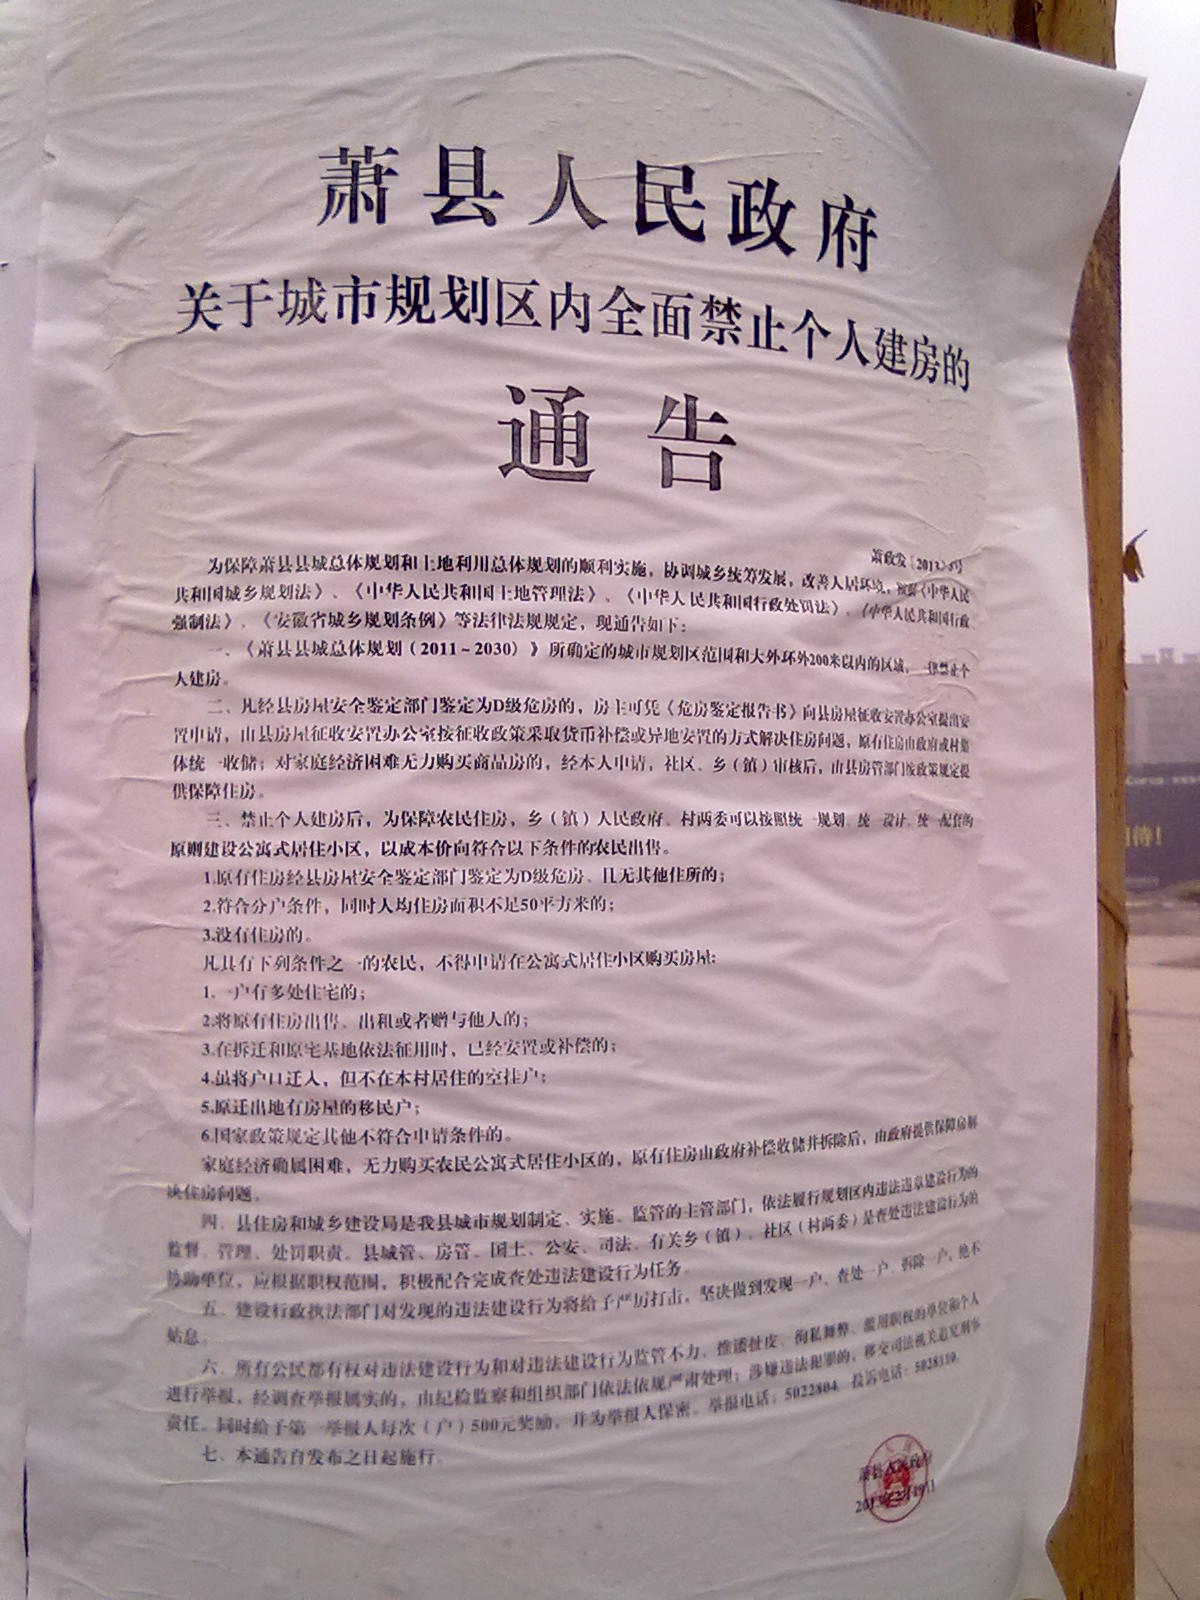 萧县人民政府
关于城市规划区内全面禁止个人建房的
通告
萧政发
为保障萧县县城总体规划和土地利用总体规划的顺利实施，协调城乡统筹发展，改善人居环境，根据《中华人民
共和国城乡规划法》、《中华人民共和国土地管理法》、《中华人民共和国行政处罚法》、《中华人民共和国行政
强制法》、《安徽省城乡规划条例》等法律法规规定，现通告如下：
一、《萧县县城总体规划（2011~2030）》所确定的城市规划区范围和大外环外200米以内的区域，一律禁止个
人建房。
二、凡经县房屋安全鉴定部门鉴定为D级危房的，房主可凭《危房鉴定报告书》向县房屋征收安置办公室提出安
置申请，由县房屋征收安置办公室按征收政策采取货币补偿或异地安置的方式解决住房问题，原有住房由政府或村集
体统一收储；对家庭经济困难无力购买商品房的，经本人申请，社区、乡（镇）审核后，由县房管部门按政策规定提
供保障住房。
三、禁止个人建房后，为保障农民住房，乡（镇）人民政府、村两委可以按照统一规划、统一设计、统一配套的
原则建设公寓式居住小区，以成本价向符合以下条件的农民出售。
1.原有住房经县房屋安全鉴定部门鉴定为D级危房、且无其他住所的；
2.符合分户条件，同时人均住房面积不足50平方米的；
3.没有住房的。
凡具有下列条件之一的农民，不得申请在公寓式居住小区购买房屋：
1.一户有多处住宅的；
2.将原有住房出售、出租或者赠与他人的；
3.在拆迁和原宅基地依法征用时，已经安置或补偿的；
4.虽将户口迁入，但不在本村居住的空挂户；
5.原迁出地有房屋的移民户；
6.国家政策规定其他不符合申请条件的。
家庭经济确属困难，无力购买农民公寓式居住小区的，原有住房由政府补偿收储并拆除后，由政府提供保障房解
决住房问题。
四、县住房和城乡建设局是我县城市规划制定、实施、监管的主管部门，依法履行规划区内违法违章建设行为的
监督、管理、处罚职责。县城管、房管、国土、公安、司法、有关乡（镇）、社区（村两委）是查处违法建设行为的
协助单位，应根据职权范围，积极配合完成查处违法建设行为任务。
五、建设行政执法部门对发现的违法建设行为将给予严厉打击，坚决做到发现一户、查处一户、拆除一户，绝不
姑息。
六、所有公民都有权对违法建设行为和对违法建设行为监管不力、推诿扯皮、徇私舞弊、滥用职权的单位和个人
进行举报，经调查举报属实的，由纪检监察和组织部门依法依规严肃处理；涉嫌违法犯罪的，移交司法机关追究刑事
责任。同时给予第一举报人每次（户）500元奖励，并为举报人保密。举报电话：5022804 投诉电话：5028110。
七、本通告自发布之日起施行。
萧县人民政府